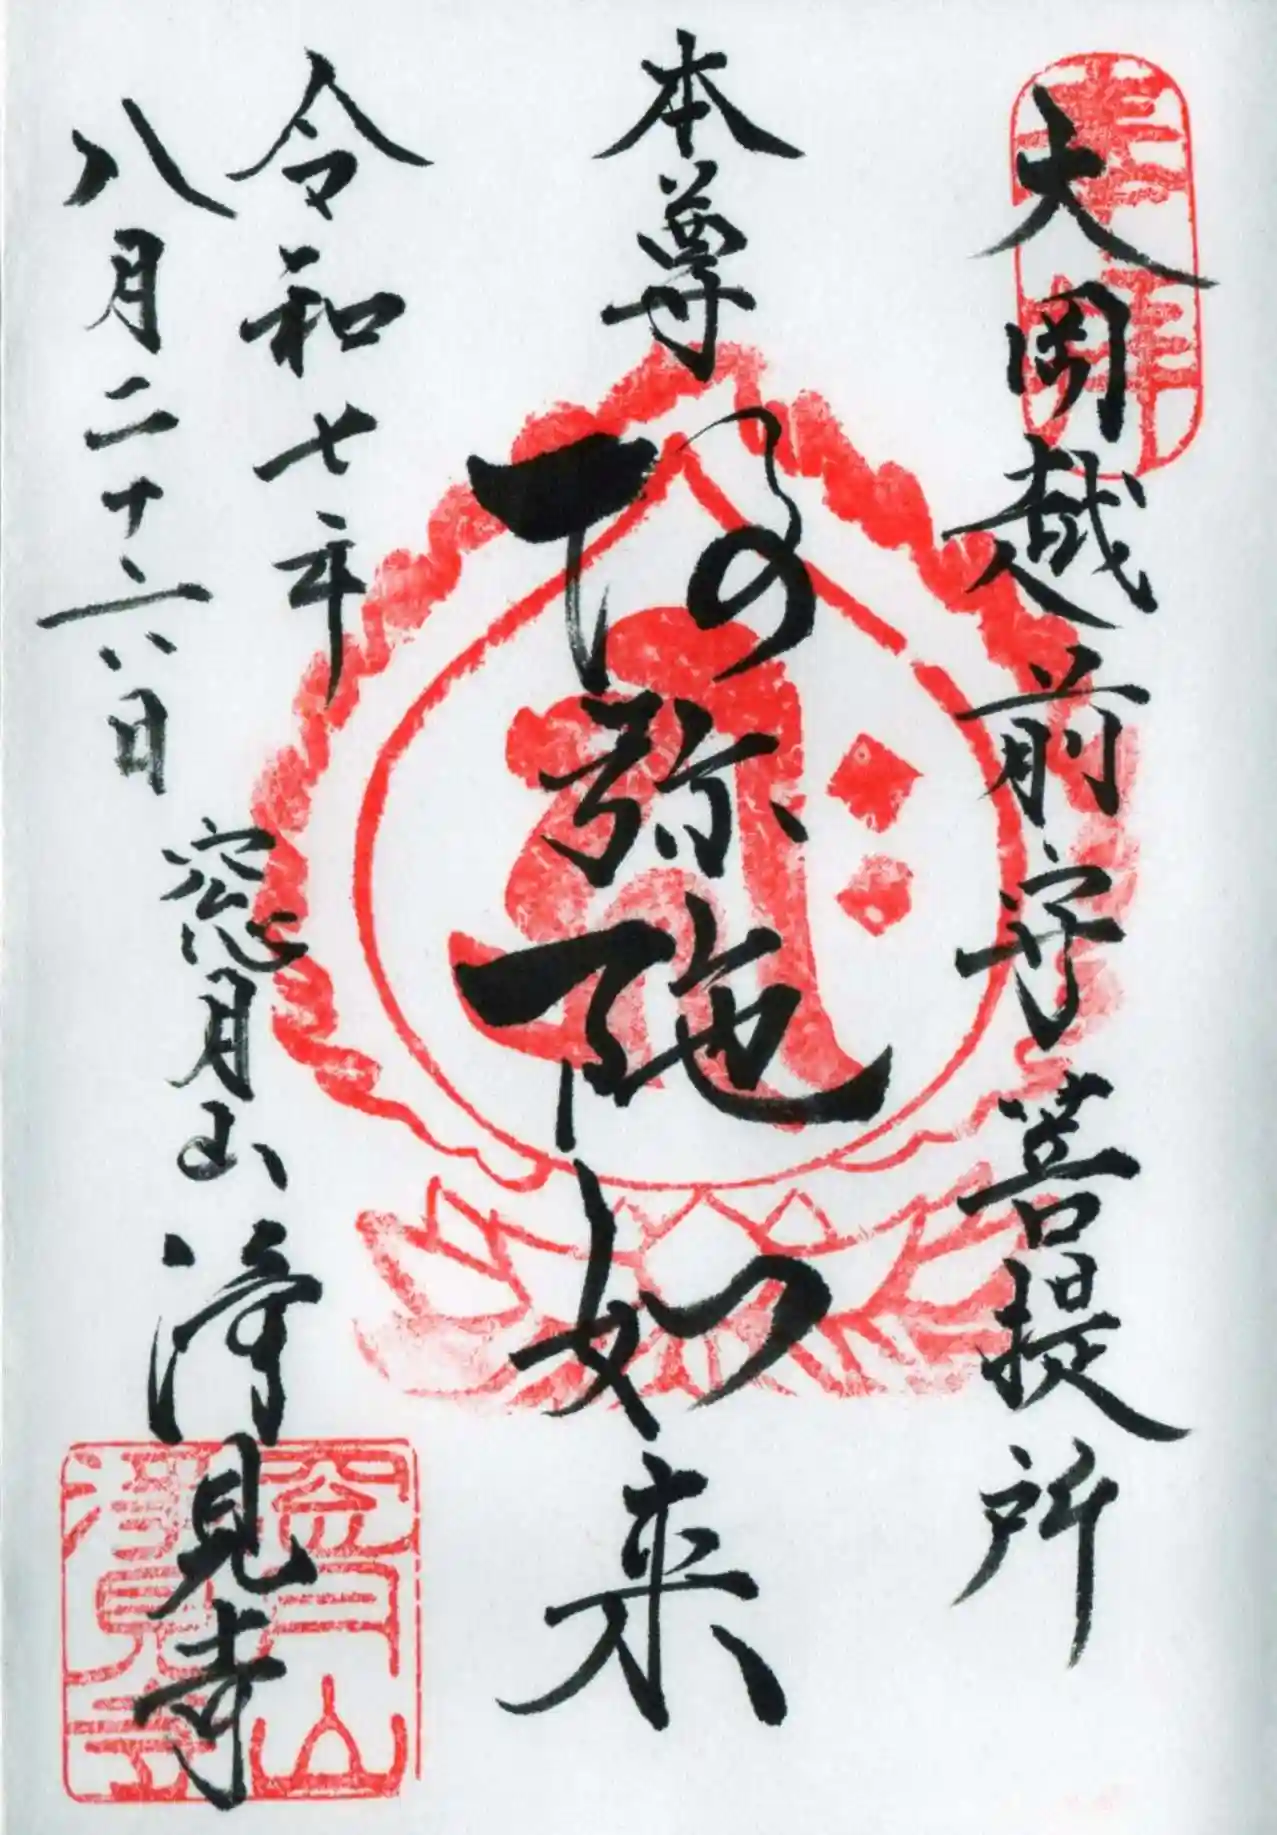 大岡越前守菩提所
本尊
阿弥陀如来
令和七年
八月二十六日
窓月山浄見寺
窓月山
浄見寺